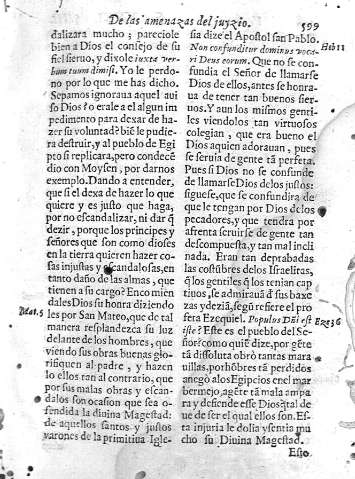 De las amenazas del juyzio. 599
dalizara mucho; pareciole
bien a Dios el consejo de su
fiel sieruo, y dixole iuxta ver-
bum tuum dimisi. Yo le perdo-
no por lo que me has dicho.
Sepamos ignoraua aquel aui
so Dios? o erale a el algun im
pedimento para dexar de ha-
zer su voluntad? bië le pudie-
ra destruir, y al pueblo de Egi
pto si replicara, pero condecē
dio con Moysen, por darnos
exemplo. Dando a entender,
que si el dexa de hazer lo que
quiere y es justo que haga,
por no escandalizar, ni dar q̃
dezir, porque los principes y
señores que son como dioses
en la tierra quieren hazer co-
sas injustas y escandalosas, en
tanto daño de las almas, que
tienen a su cargo? Encomien
dales Dios su honra diziendo
Mat. 5 les por San Mateo, que de tal
manera resplandezca su luz
delante de los hombres, que
viendo sus obras buenas glo-
rifiquen al padre, y hazen
lo ellos tan al contrario, que
por sus malas obras y escan-
dalos son ocasion que sea o-
fendida la diuina Magestad:
de aquellos santos y justos
varones de la primitiua Igle-
sia dize el Apostol san Pablo.
Non confunditur dominus voca- Heb 11
ri Deus eorum. Que no se con-
fundia el Señor de llamarse
Dios de ellos, antes se honra-
ua de tener tan buenos sier-
uos. Y aun los mismos genti-
les viendolos tan virtuosos
colegian, que era bueno el
Dios a quien adorauan, pues
se seruia de gente tã perfeta.
Pues si Dios no se confunde
de llamarse Dios de los justos:
siguese, que se confundira de
que le tengan por Dios de los
pecadores, y que tendra por
afrenta seruirse de gente tan
descompuesta, y tan mal incli
nada. Eran tan deprabadas
las costūbres de los Israelitas,
q̃ los gentiles q̃ los tenian cap
tiuos, se admirauã d̃ sus baxe
zas y deziã, segũ refiere el pro
feta Ezequiel. Populus Dei est Eze36
iste? Este es el pueblo del Se-
ñor? como quië dize, por gëte
tã dissoluta obrò tantas mara
uillas, por hõbres tã perdidos
anegò a los Egipcios en el mar
bermejo, a gëte tã mala ampa
ra y defiende esse Dios? tal de
ue de ser el qual ellos son. Es-
ta injuria le dolia y sentia mu
cho su Diuina Magestad.
Esto